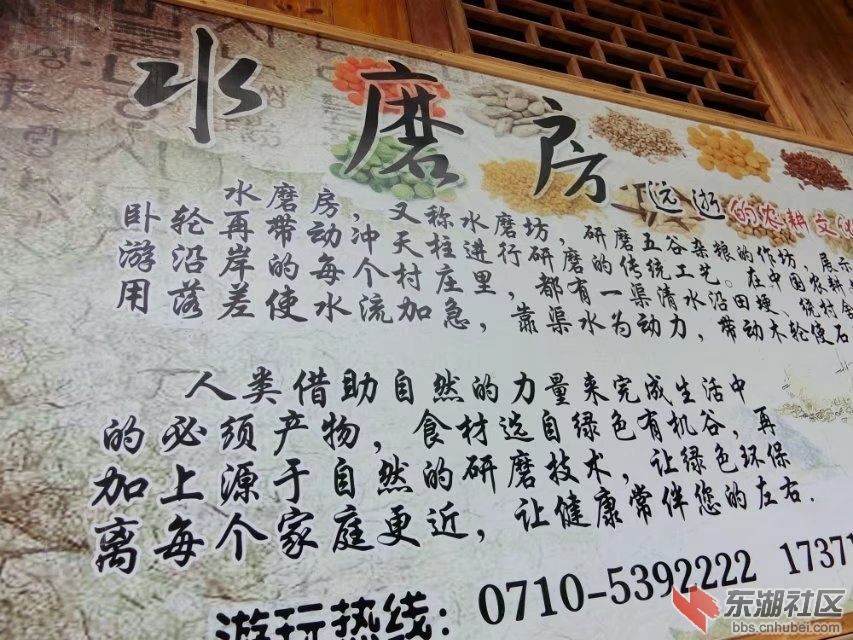 水磨房
远逝的农耕文化
水磨房，又称水磨坊，研磨五谷杂粮的作坊，展示
卧轮再带动冲天柱进行研磨的传统工艺。在中国农耕
游沿岸的每个村庄里，都有一渠清水沿田埂、绕村舍
用落差使水流加急，靠渠水为动力，带动木轮使石
人类借助自然的力量来完成生活中
的必须产物，食材选自绿色有机谷，再
加上源于自然的研磨技术，让绿色环保
离每个家庭更近，让健康常伴您的左右.
游玩热线：0710-5392222 17371
东湖社区
bbs.cnhubei.com